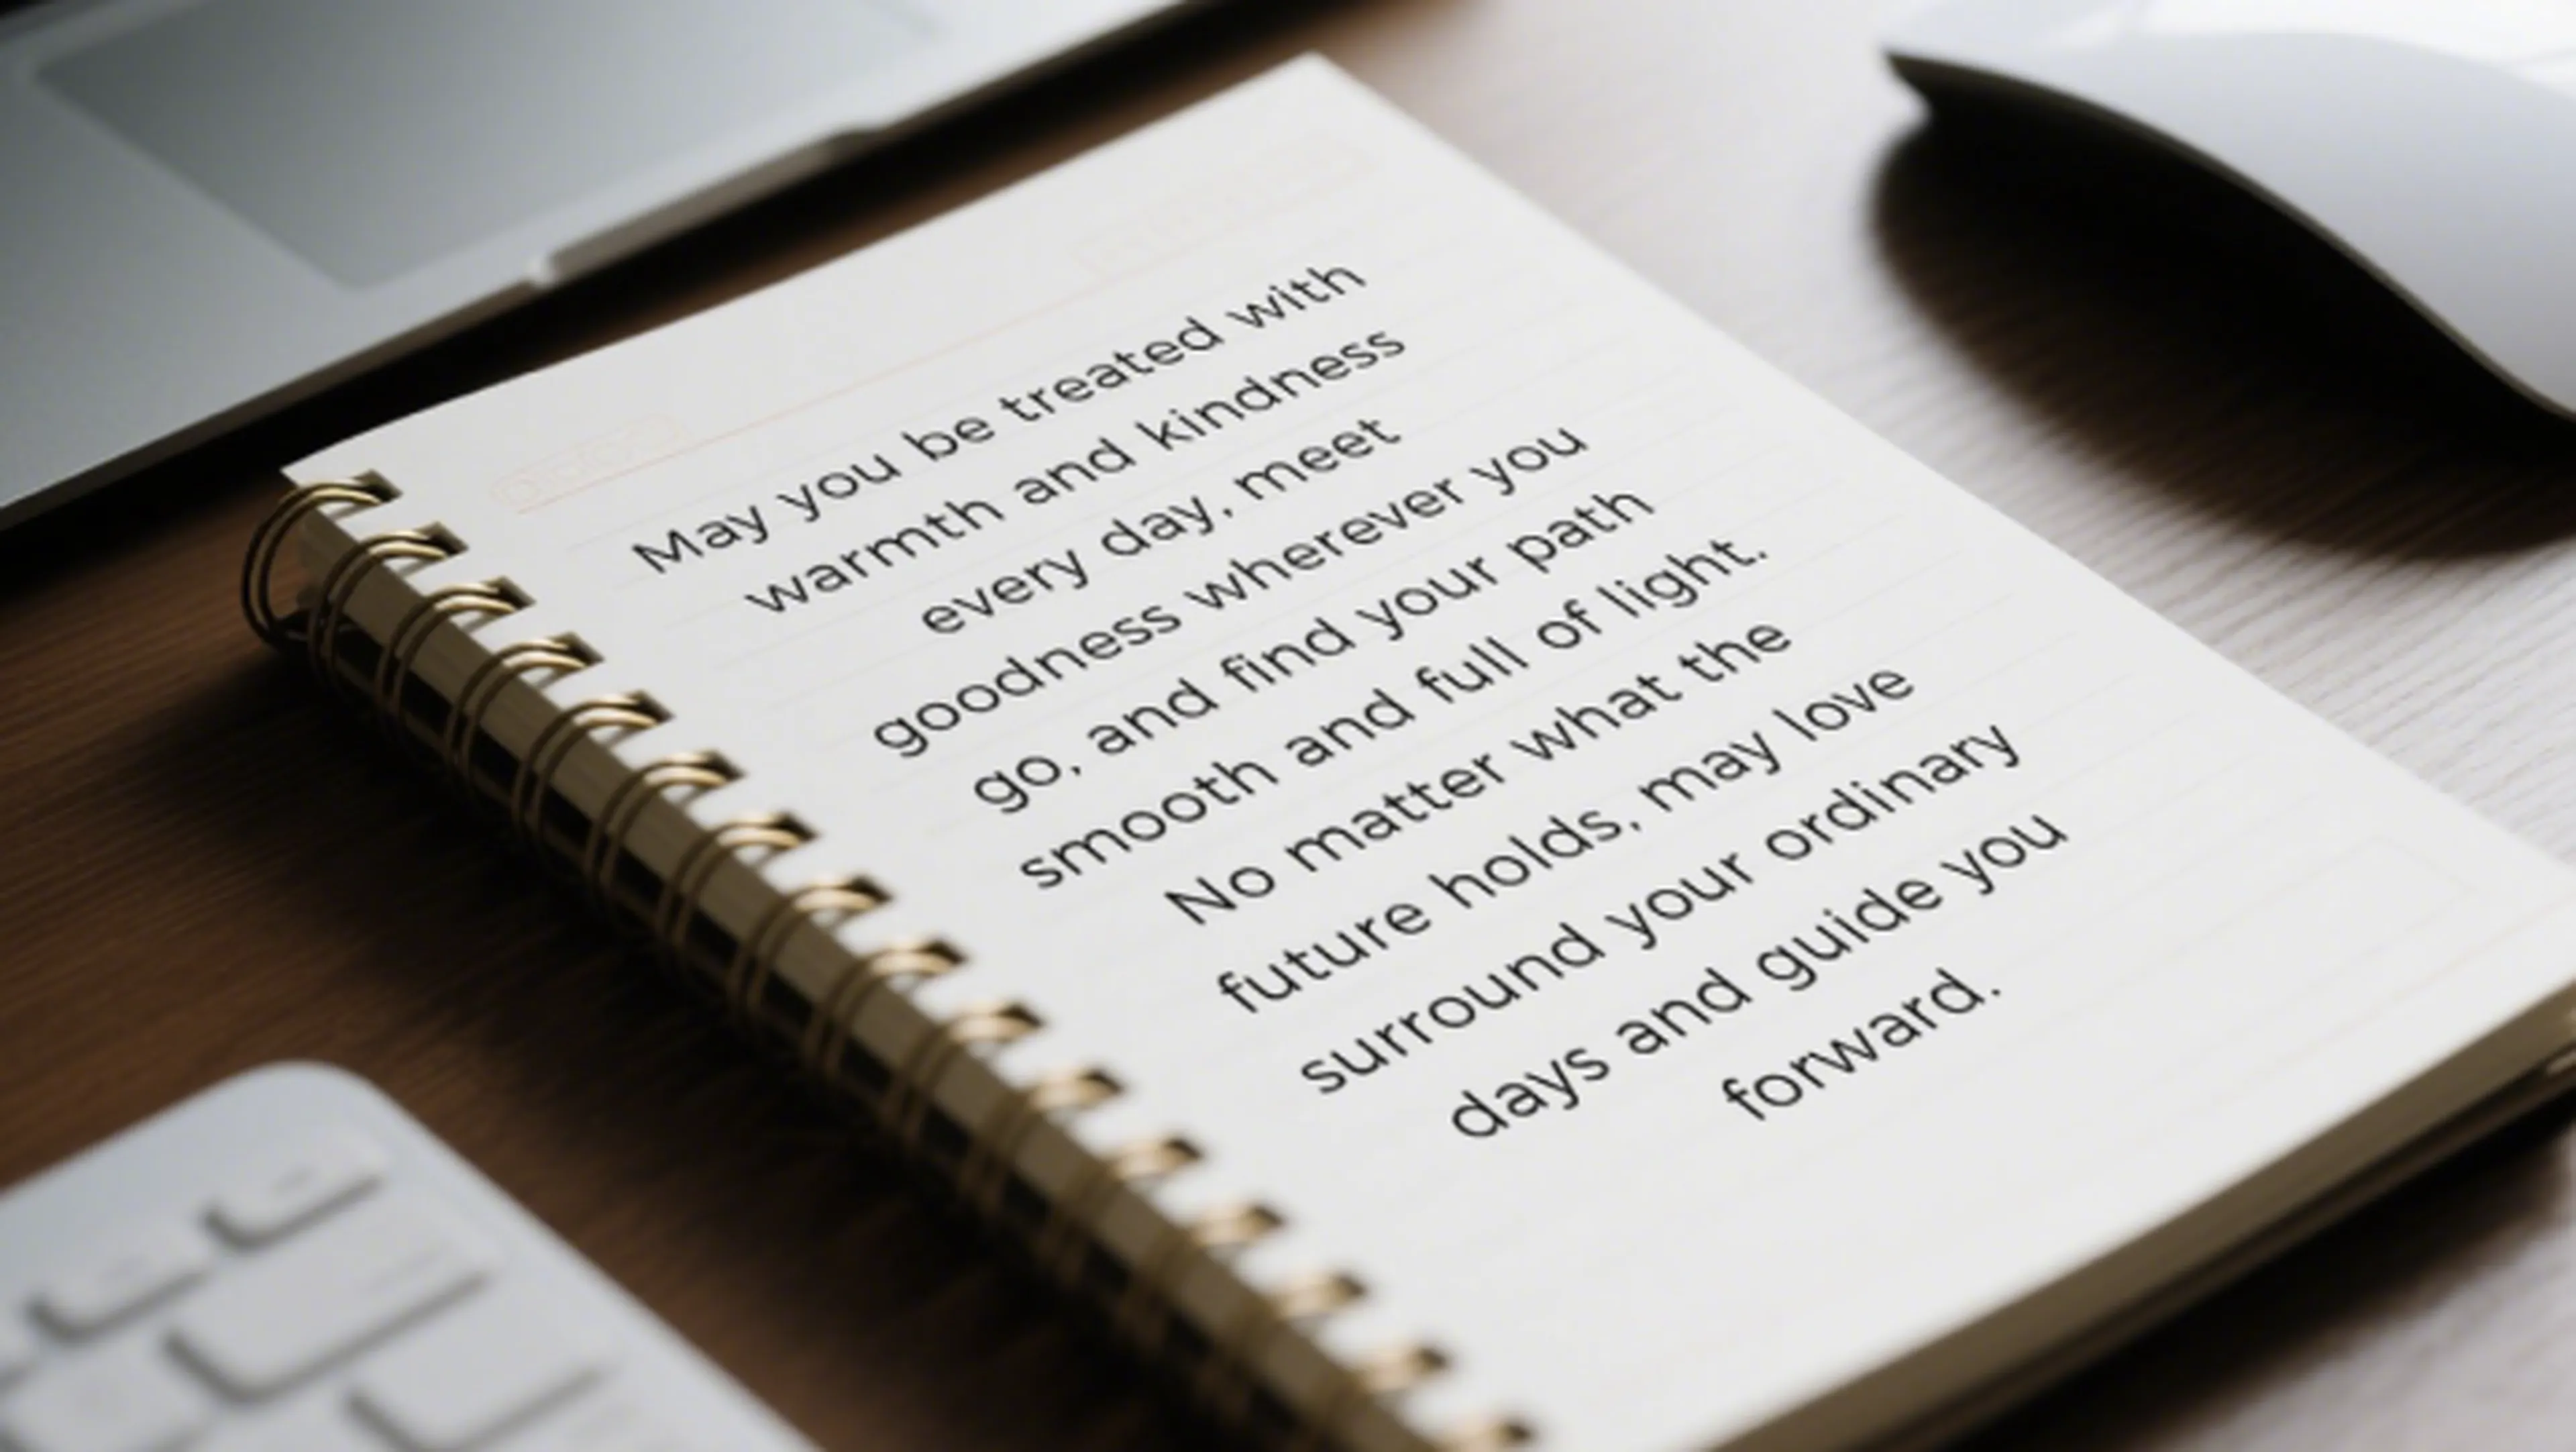 May you be treated with
warmth and kindness
every day, meet
goodness wherever you
go, and find your path
smooth and full of light.
No matter what the
future holds, may love
surround your ordinary
days and guide you
forward.